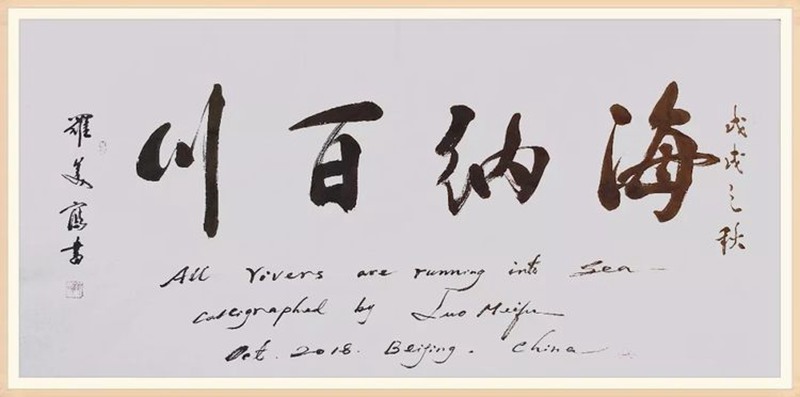 戊戌之秋
海纳百川
羅美富書
All rivers are running into Sea
calligraphed by Luo Meifu
Oct. 2018. Beijing. China